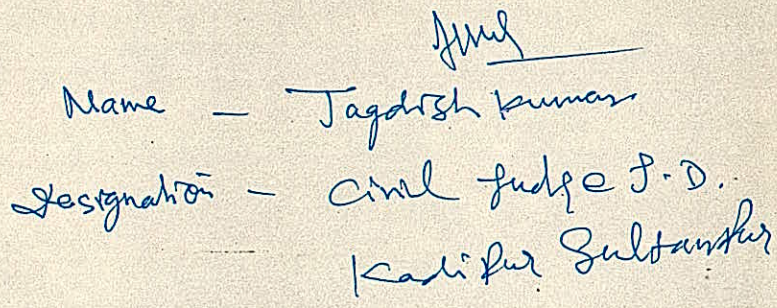 Name - Jagdish Kumar
Designation - Civil Judge J.D.
Kadipur Sultanpur